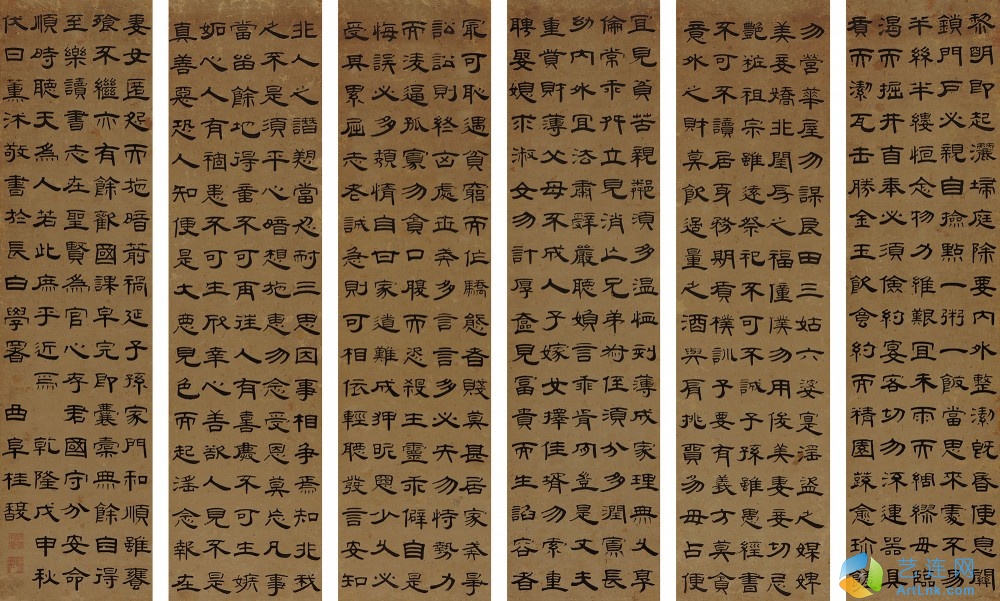 黎明即起灑埽庭除要內外整潔既昏便息關
鎖門戶必親自撿點一粥一飯當思來處不易
半絲半縷恒念物力維艱宜未雨而綢繆毋臨
渴而掘井自奉必須儉約宴客切勿流連器具
質而潔瓦缶勝金玉飲食約而精園蔬愈珍羞
勿營華屋勿謀良田三姑六婆寔淫盜之媒婢
美妾嬌非閨房之福僮僕勿用俊美妻妾切忌
豔妝祖宗雖遠祭祀不可不誠子孫雖愚經書
不可不讀居身務期質樸訓子要有義方莫貪
意外之財莫飲過量之酒與肩挑貿易毋占便
宜見貧苦親鄰須多溫恤刻薄成家理無久享
倫常乖舛立見消亡兄弟叔侄須分多潤寡長
幼內外宜法肅辭嚴聽婦言乖骨肉豈是丈夫
重貲財薄父母不成人子嫁女擇佳壻勿索重
聘娶媳求淑女勿計厚奩見富貴而生諂容者
最可恥遇貧窮而作驕態者賤莫甚居家莫爭
訟訟則終凶處世莫多言言多必失勿恃勢力
而凌逼孤寡勿貪口腹而恣殺生靈乖僻自是
悔誤必多頹惰自甘家道難成狎昵惡少久必
受其累屈志老誠急則可相依輕聽發言安知
非人之譖愬當忍耐三思因事相爭焉知非我
之不是須平心暗想施惠勿念受恩莫忘凡事
當留餘地得意不可再往人有喜慶不可生嫉
妬心人有禍患不可生欣幸心善欲人見不是
真善惡恐人知便是大惡見色而起淫念報在
妻女匿怨而施暗箭禍延子孫家門和順雖饔
飧不繼亦有餘歡國課早完即囊橐無餘自得
至樂讀書志在聖賢為官心存君國守分安命
順時聽天為人若此庶乎近焉 乾隆戊申秋
代日薰沐敬書於長白學署 曲阜桂馥
艺连网
ArtLnk.com